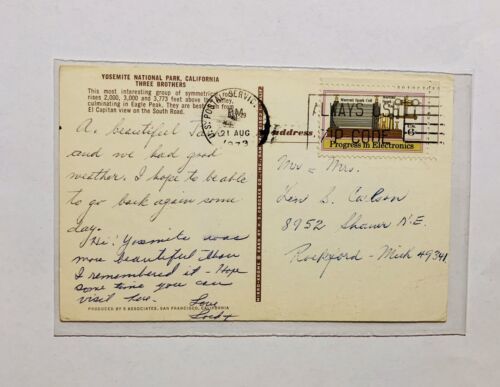 YOSEMITE NATIONAL PARK, CALIFORNIA
THREE BROTHERS
This most interesting group of symmetrical
rises 2,000, 3,000 and 3,773 feet above the valley,
culminating in Eagle Peak. They are best seen from
El Capitan view on the South Road.
A beautiful
and we had good
weather. I hope to be able
to go back again some
day.
Hi! Yosemite was
more beautiful than
I remembered it - Hope
some time you can
visit here.
Love
PRODUCED BY ASSOCIATES, SAN FRANCISCO, CALIFORNIA
U.S. POSTAL SERVICE
PM
21 AUG
1973
ALWAYS USE
ZIP CODE
Marconi Spark Coil
Progress in Electronics
address
Mr + Mrs.
Len S. Carlson
8952 Shaner N.E.
Rockford - Mich 49341